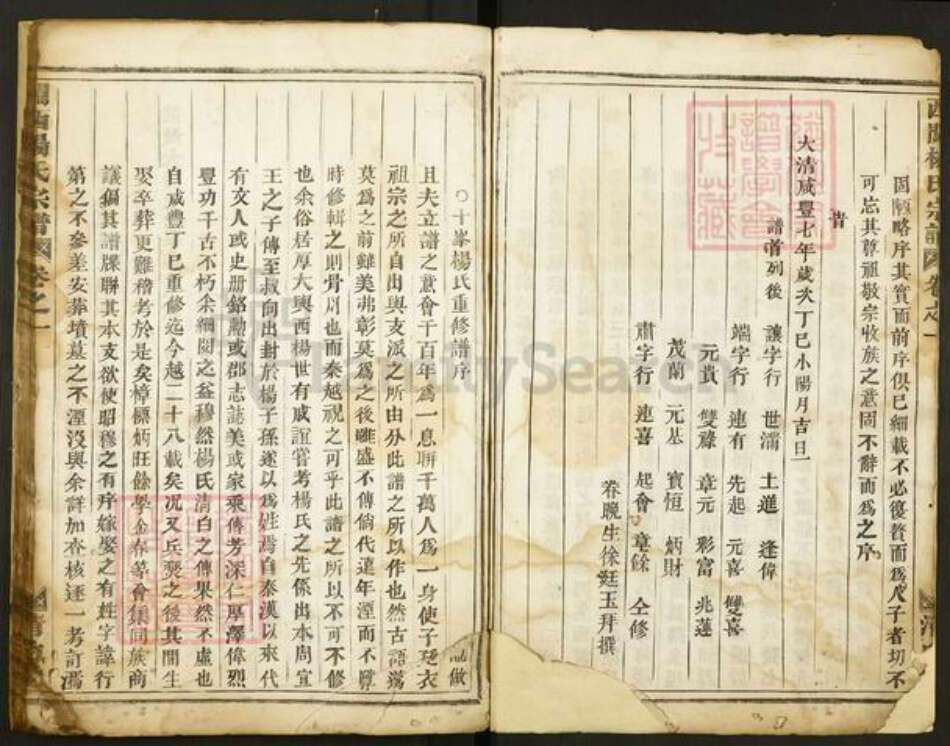 因陋略序其實而前序俱已細載不必復贅而爲人子者切不
可忘其尊祖敬宗收族之意固不辭而爲之序
旹
大清咸豐七年歲次丁巳小陽月吉旦
譜首列後
讓字行 世濡 土進 逢偉
端字行 連有 先起 元喜 雙喜
元貴 雙祿 章元 彩富 兆蓮
茂蘭 元基 寶恒 炳財
肅字行 連喜 起會 章餘 仝修
眷晚生徐廷玉拜撰
西關楊氏宗譜 卷之一
〇十峯楊氏重修譜序
且夫立譜之意會千百年爲一息聯千萬人爲一身使子孫衣
祖宗之所自出與支派之所由分此譜之所以作也然古語蕩
莫爲之前雖美弗彰莫爲之後雖盛不傳倘代遠年湮而不爲
時修輯之則骨肉也而秦越視之可乎此譜之所以不可不修
也余俗居厚大與西楊世有戚誼嘗考楊氏之先係出本周宣
王之子傳至叔向出封於楊子孫遂以爲姓焉自秦漢以來代
有文人或史册銘勲或郡志誌美或家乘傳芳深仁厚澤偉烈
豐功千古不朽余細閱之益穆然楊氏清白之傳果然不虛也
自咸豐丁巳重修迄今越二十八載矣况又兵燹之後其間生
娶卒葬更難稽考於是矣樟標炳旺餘學金春等會集同族商
議徧其譜牒聯其本支欲使昭穆之有序嫁娶之有姓字諱行
第之不參差安葬墳墓之不湮沒與余詳加查核逐一考訂焉
關西楊氏宗譜 卷之一
Family Search